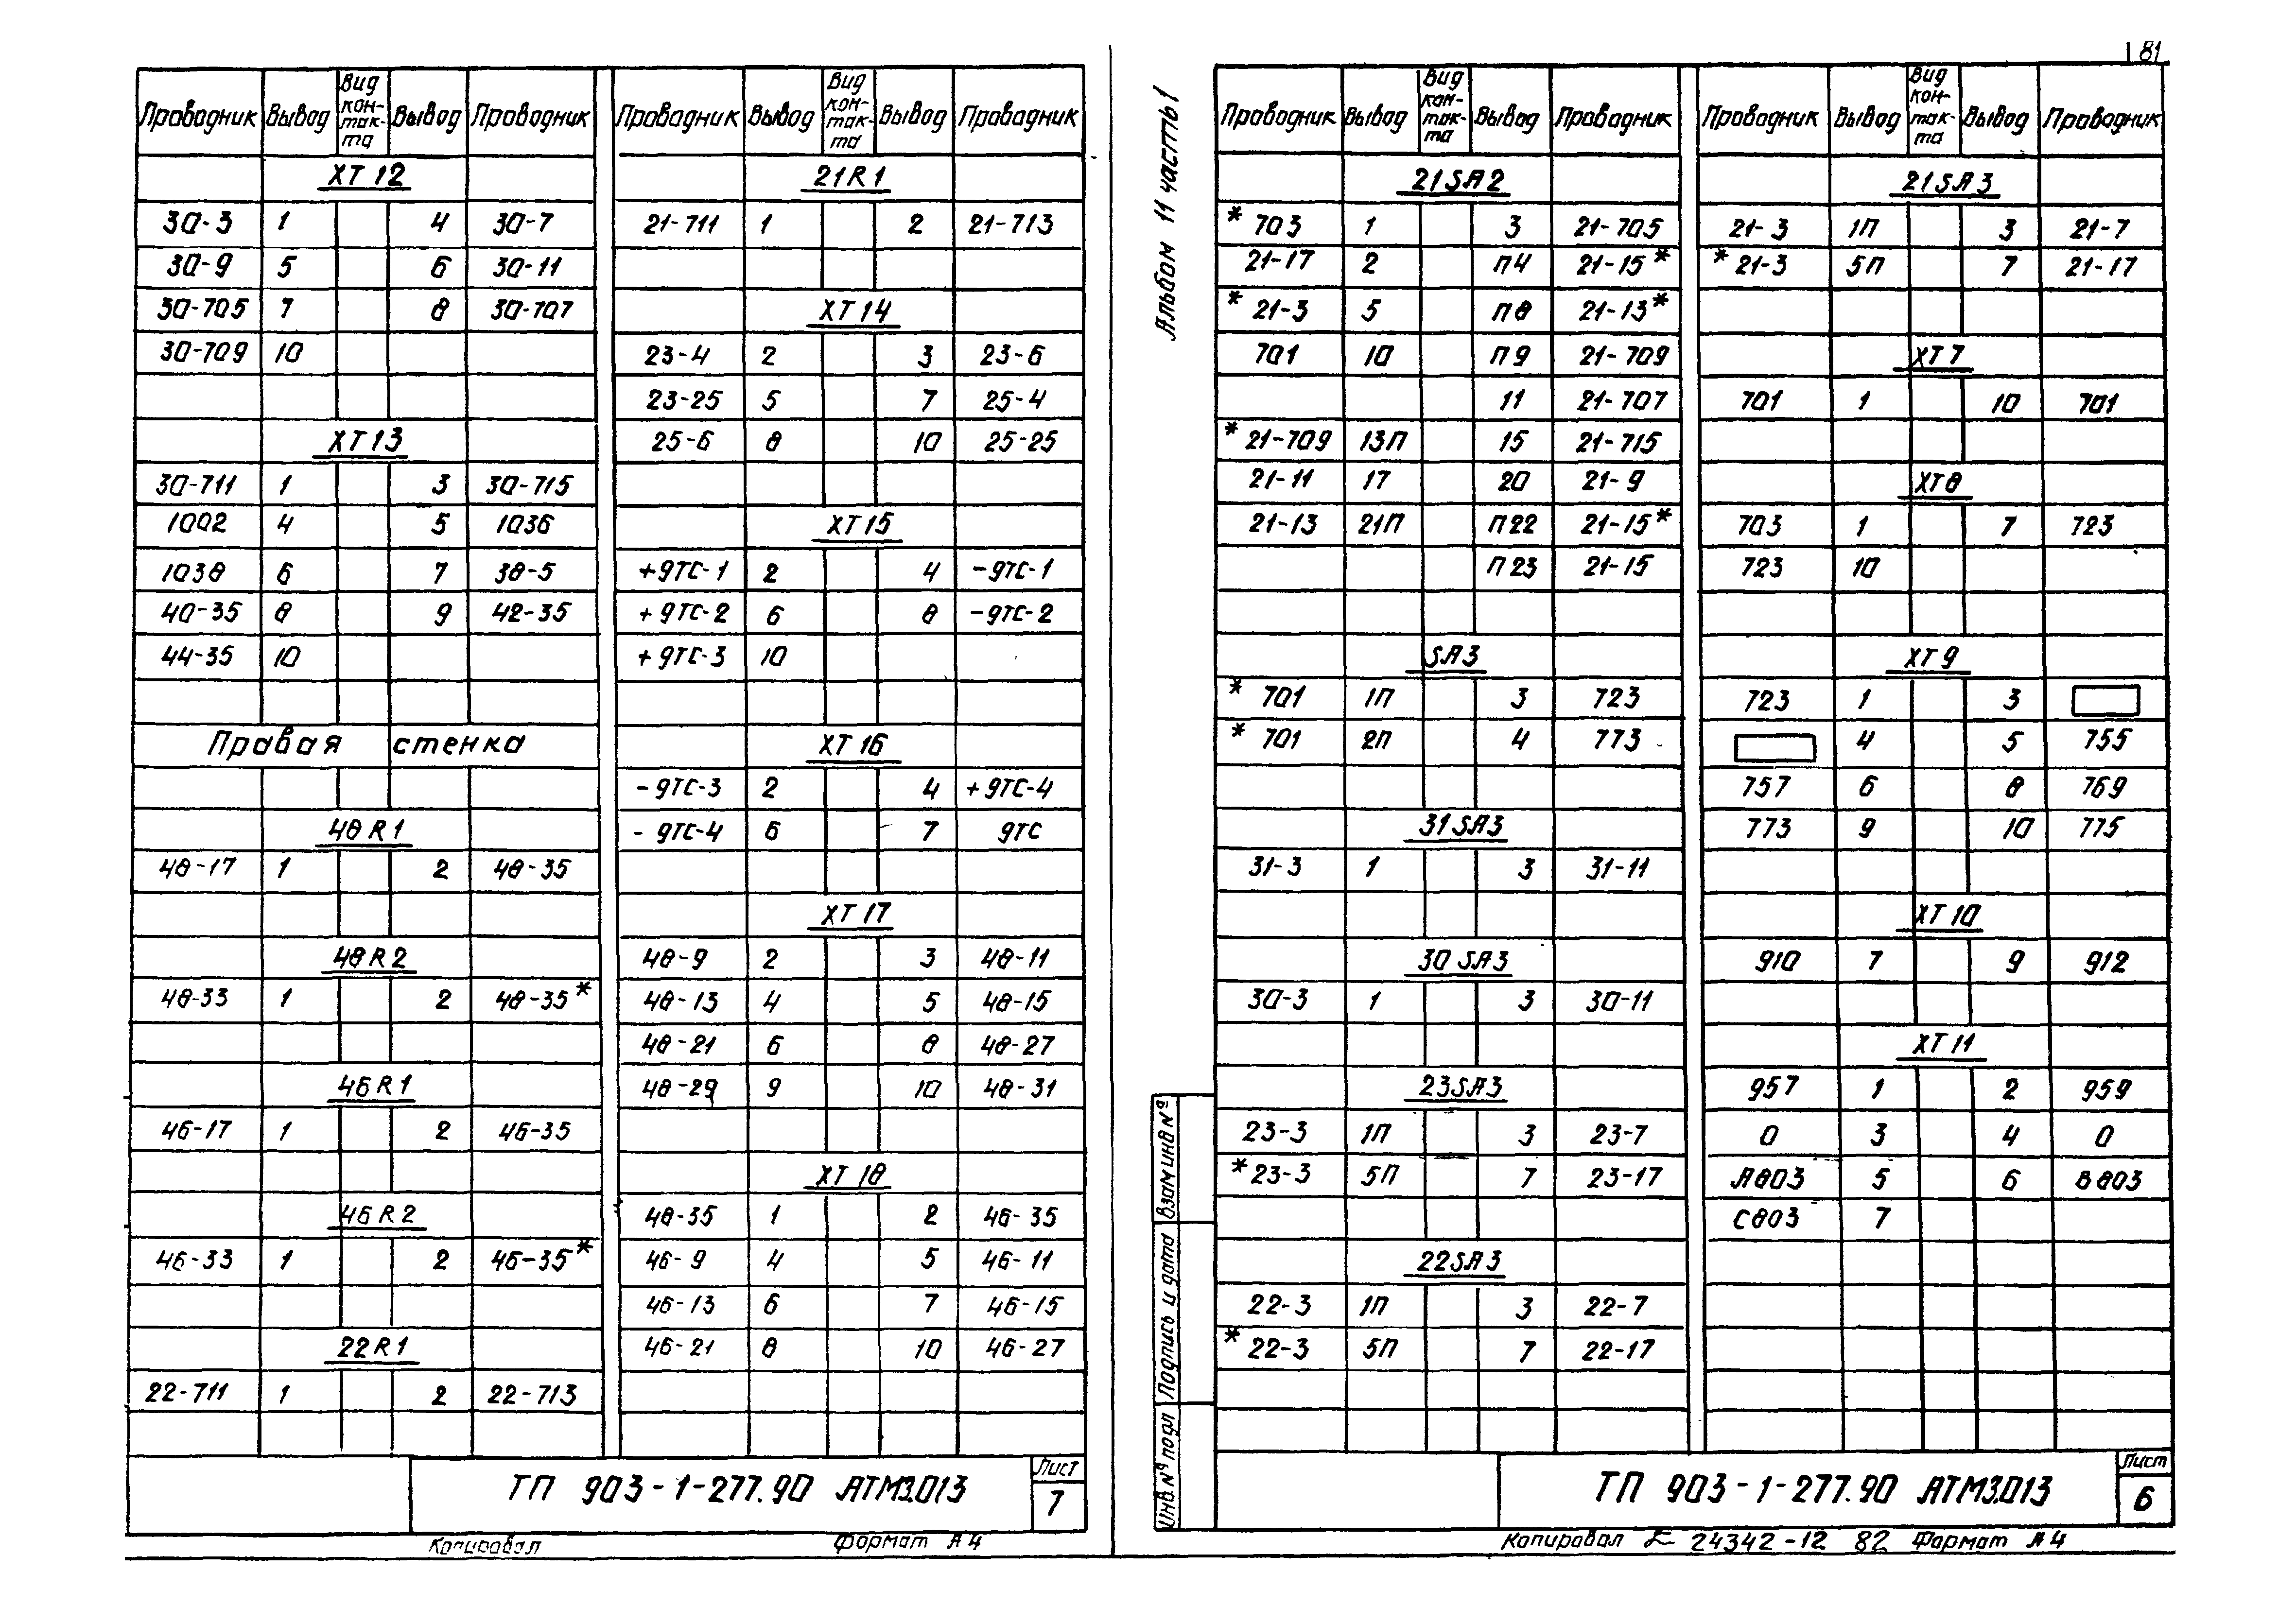 81
Альбом 11 часть 1
Проводник Вывод Вид кон-так-та Вывод Проводник
ХТ12
30-3 1 4 30-7
30-9 5 6 30-11
30-705 7 8 30-707
30-709 10
ХТ13
30-711 1 3 30-715
1002 4 5 1036
1038 6 7 38-5
40-35 8 9 42-35
44-35 10
Правая стенка
48R1
48-17 1 2 48-35
48R2
48-33 1 2 48-35*
46R1
46-17 1 2 46-35
46R2
46-33 1 2 46-35*
22R1
22-711 1 2 22-713
Проводник Вывод Вид кон-так-та Вывод Проводник
21R1
21-711 1 2 21-713
ХТ14
23-4 2 3 23-6
23-25 5 7 25-4
25-6 8 10 25-25
ХТ15
+9ТС-1 2 4 -9ТС-1
+9ТС-2 6 8 -9ТС-2
+9ТС-3 10
ХТ16
-9ТС-3 2 4 +9ТС-4
-9ТС-4 6 7 9ТС
ХТ17
48-9 2 3 48-11
48-13 4 5 48-15
48-21 6 8 48-27
48-29 9 10 48-31
ХТ18
48-35 1 2 46-35
46-9 4 5 46-11
46-13 6 7 46-15
46-21 8 10 46-27
ТП 903-1-277.90 АТМ3.013
Лист
7
Копировал Формат А4
Проводник Вывод Вид кон-так-та Вывод Проводник
21SA2
*703 1 3 21-705
21-17 2 П4 21-15*
*21-3 5 П8 21-13*
701 10 П9 21-709
11 21-707
*21-709 13П 15 21-715
21-11 17 20 21-9
21-13 21П П22 21-15*
П23 21-15
SA3
*701 1П 3 723
*701 2П 4 773
31SA3
31-3 1 3 31-11
30SA3
30-3 1 3 30-11
23SA3
23-3 1П 3 23-7
*23-3 5П 7 23-17
22SA3
22-3 1П 3 22-7
*22-3 5П 7 22-17
Проводник Вывод Вид кон-так-та Вывод Проводник
21SA3
21-3 1П 3 21-7
*21-3 5П 7 21-17
ХТ7
701 1 10 701
ХТ8
703 1 7 723
723 10
ХТ9
723 1 3
4 5 755
757 6 8 769
773 9 10 775
ХТ10
910 7 9 912
ХТ11
957 1 2 959
0 3 4 0
А803 5 6 В803
С803 7
Взам инв №
Подпись и дата
Инв. № подл
ТП 903-1-277.90 АТМ3.013
Лист
6
Копировал 24342-12 82 Формат А4